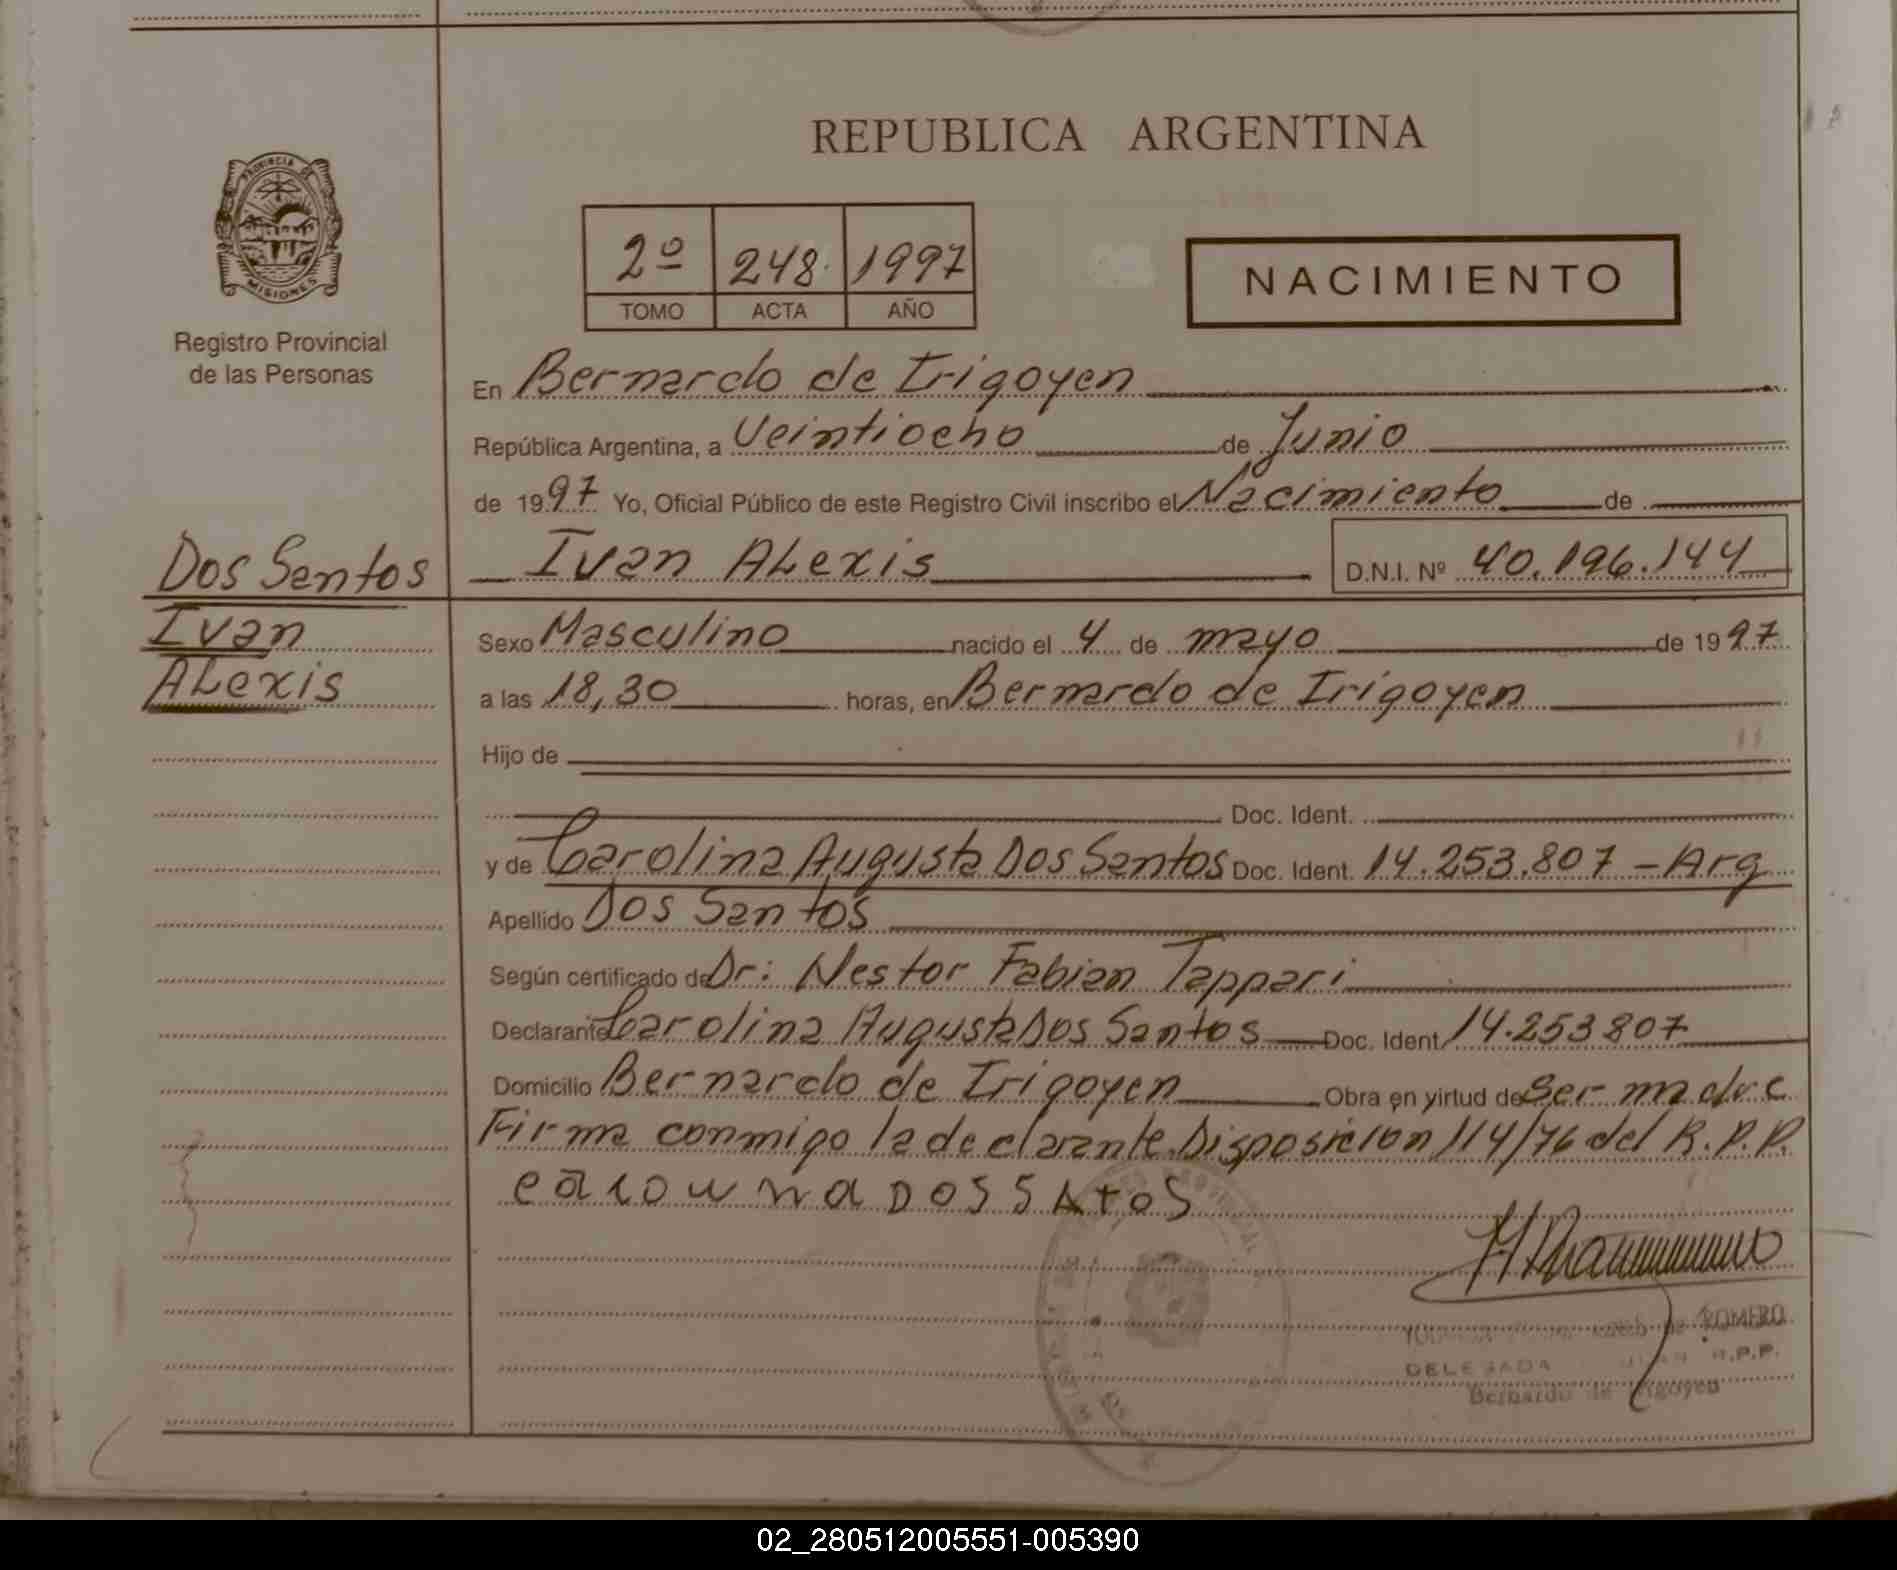 REPUBLICA ARGENTINA
PROVINCIA DE
MISIONES
Registro Provincial
de las Personas
2º 248 1997
TOMO ACTA AÑO
NACIMIENTO
En Bernardo de Irigoyen
República Argentina, a Veintiocho de Junio
de 1997 Yo, Oficial Público de este Registro Civil inscribo el Nacimiento de
Dos Santos
Ivan Alexis D.N.I. Nº 40.196.144
Ivan
Sexo Masculino nacido el 4 de mayo de 1997
Alexis
a las 18,30 horas, en Bernardo de Irigoyen
Hijo de
Doc. Ident.
y de Carolina Augusta Dos Santos Doc. Ident. 14.253.807 - Arg
Apellido Dos Santos
Según certificado de Dr: Nestor Fabian Tappari
Declarante Carolina Augusta Dos Santos Doc. Ident 14.253807
Domicilio Bernardo de Irigoyen Obra en virtud de ser madre
Firma conmigo la declarante. Disposicion 114/76 del R.P.P.
DOS SAtOS
ROMERO
DELEGADA R.P.P.
Bernardo de Irigoyen
02_280512005551-005390